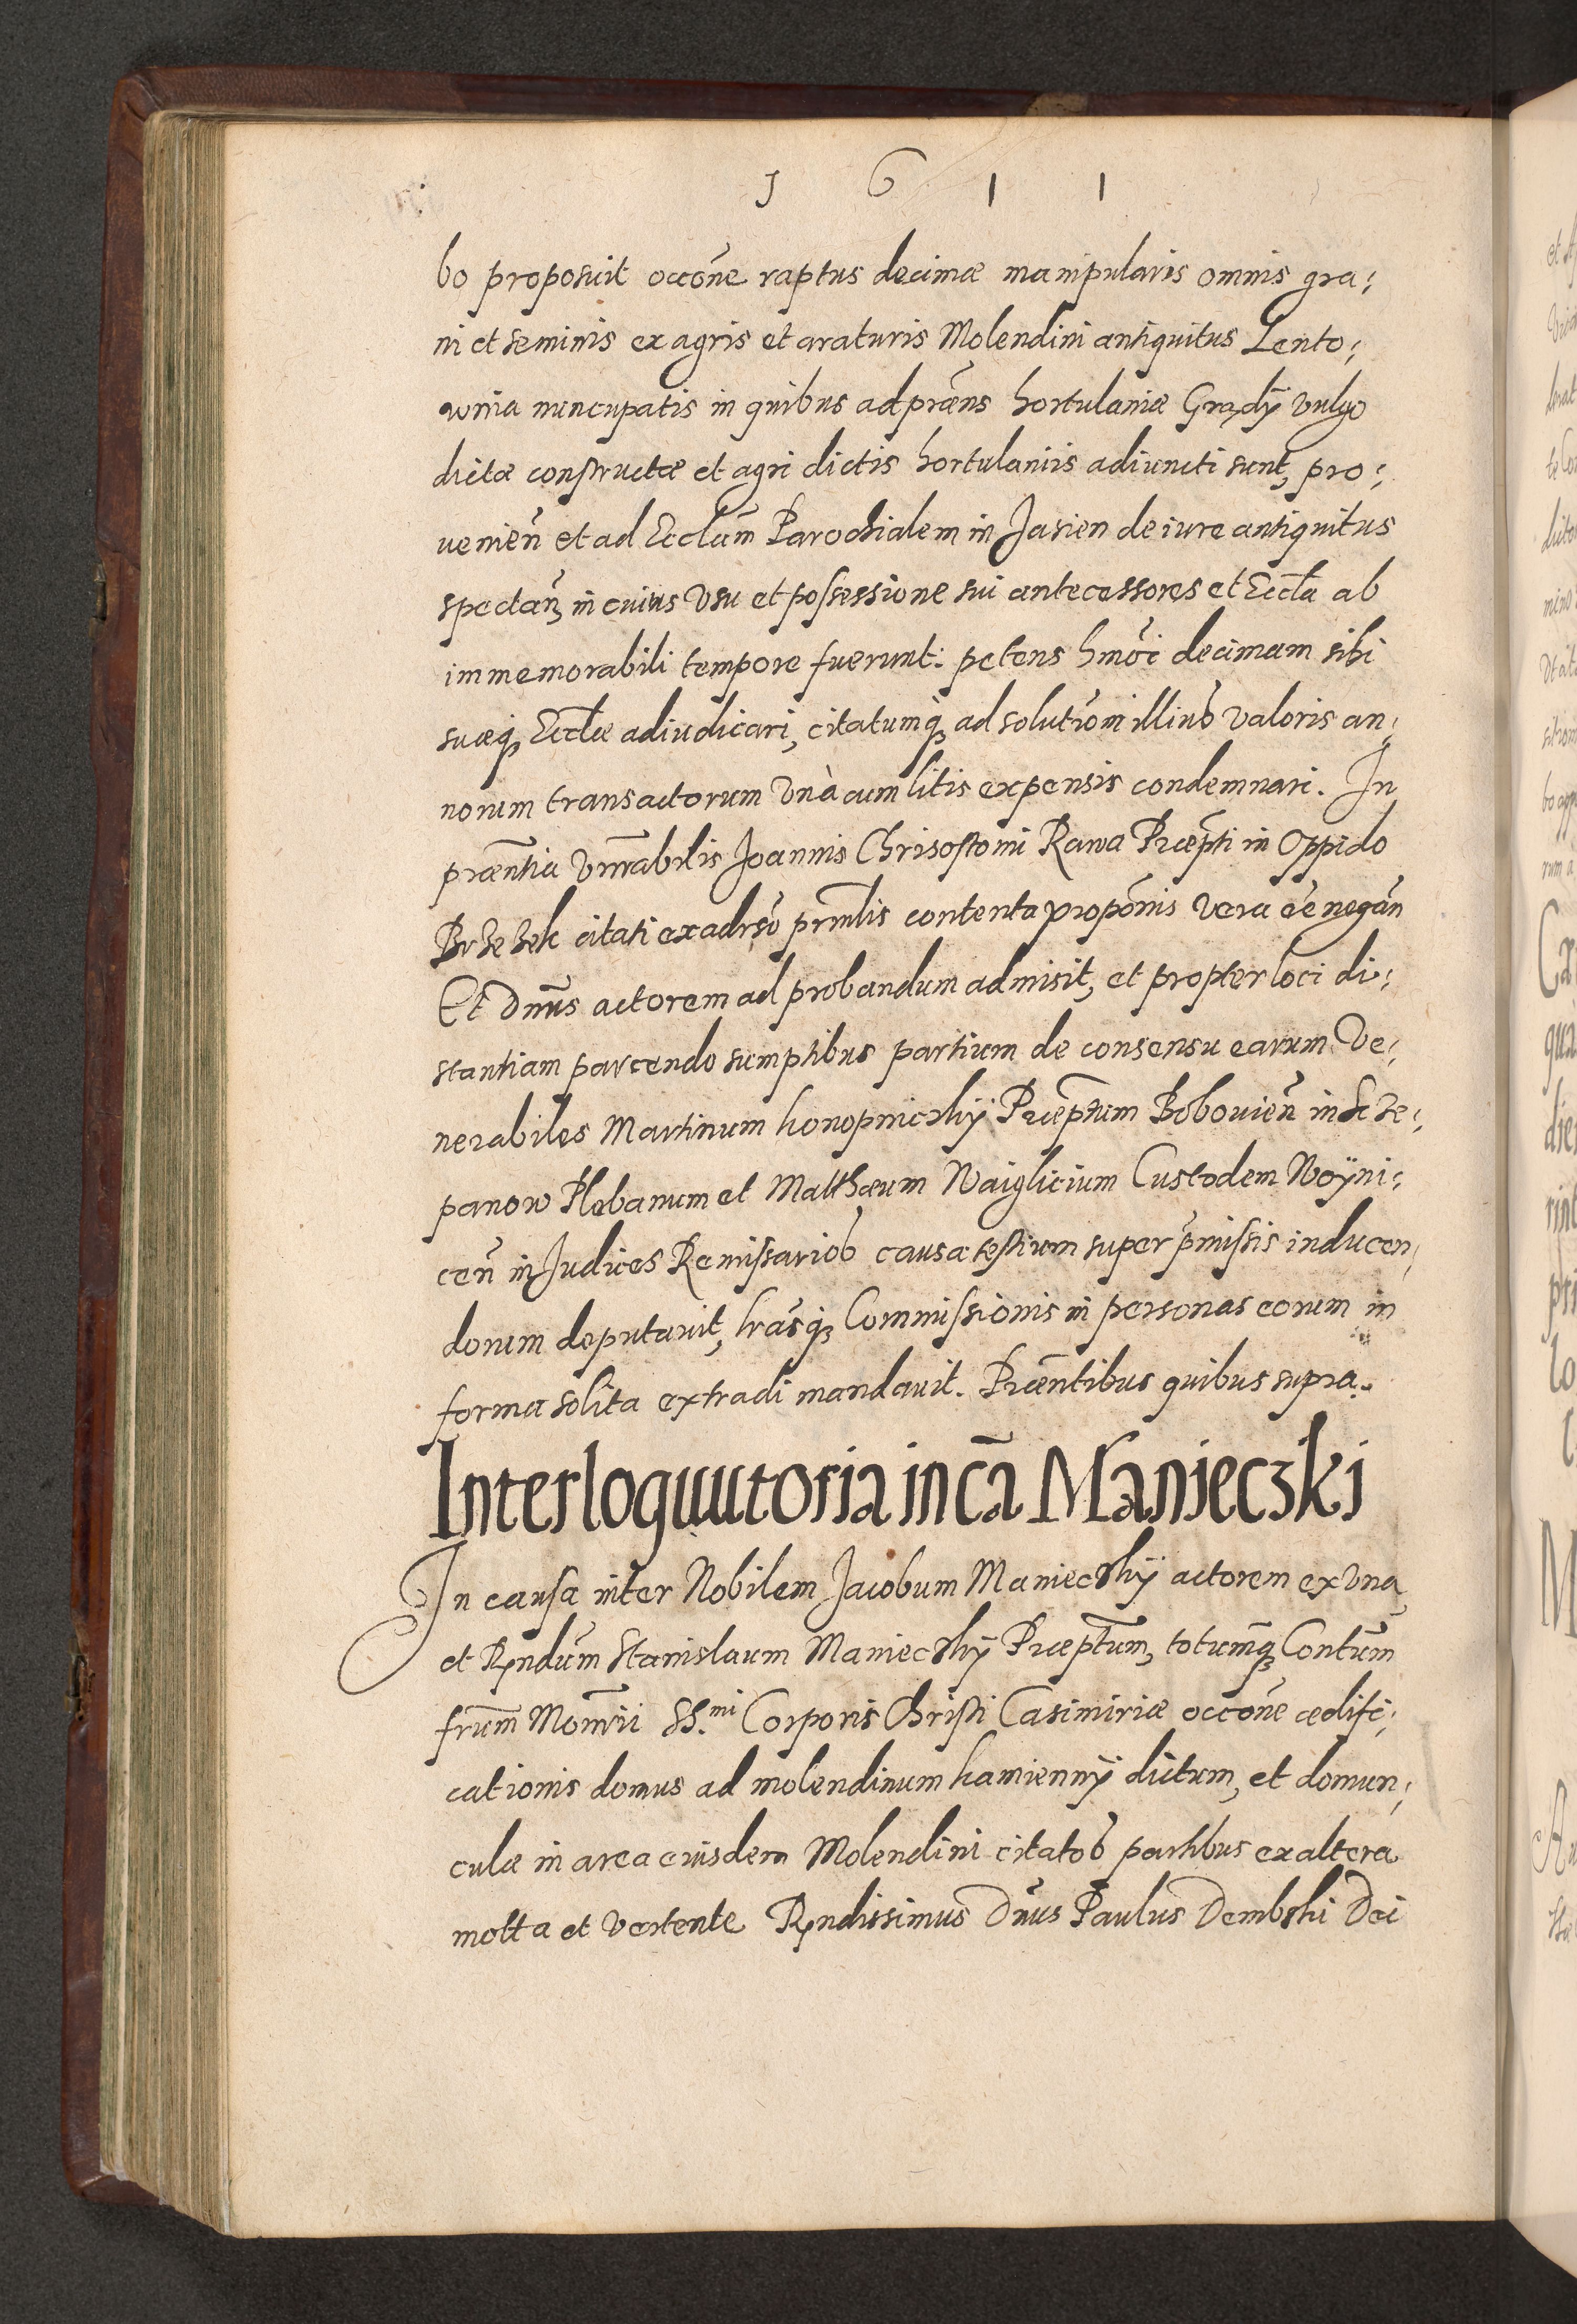 1 6 1 1
bo proposuit occone raptus decimæ manipularis omnis gra;
ni et seminis ex agris et araturis Molendini antiquitus Lento;
wnia nuncupatis in quibus ad præns hortulaniæ Grądÿ vulgo
dictæ constructæ et agri dictis hortulaniis adiuncti sunt, pro;
uenien̄ et ad Ecclām Parochialem in Jasien de iure antiquitus
spectan̄, in cuius vsu et possessione sui antecessores et Eccl̄a ab
immemorabili tempore fuerunt: petens hmōi decimam sibi
suæq; Eccl̄æ adiudicari, citatumq; ad solutiōm illius valoris an;
norum transactorum vnà cum litis expensis condemnari. In
præn̄tia vn̄rabilis Joannis Chrisostomi Rawa Præp̄ti in Oppido
Brzezek citati ex adrsō prm̄lis contenta propōnis vera eē negān
Et Dnūs actorem ad probandum admisit, et propter loci di;
stantiam parcendo sumptibus partium de consensu earum Ve;
nerabiles Martinum konopniczkÿ Præp̄tum Bobouien̄ in Scze;
panow Plebanum et Matthæum Waiglicium Custodem Woÿni;
cen̄ in Judices Remissarios causa testium super p̄missis inducen;
dorum deputauit, lrāsq; Commissionis in personas eorum in
forma solita extradi mandauit. Præn̄tibus quibus supra.
Interloquutoria in cā Manieczki
In causa inter Nobilem Jacobum Manieczkÿ actorem ex vna
et Rn̄dum Stanislaum Manieczkÿ Præp̄tum, totumq; Conūtm
frūm Mon̄rii SS.mi Corporis Christi Casimiriæ occōne ædifi;
cationis domus ad molendinum kamiennÿ dictum, et domun;
culæ in area euisdem Molendini citatos partibus ex altera
motta et vertente Rn̄dissimus Dn̄us Paulus Dembski Dei